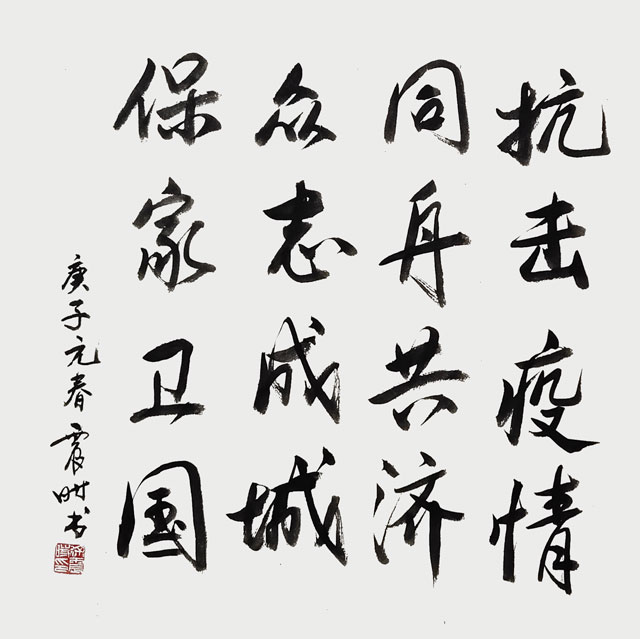 抗击疫情
同舟共济
众志成城
保家卫国
庚子元春震时书